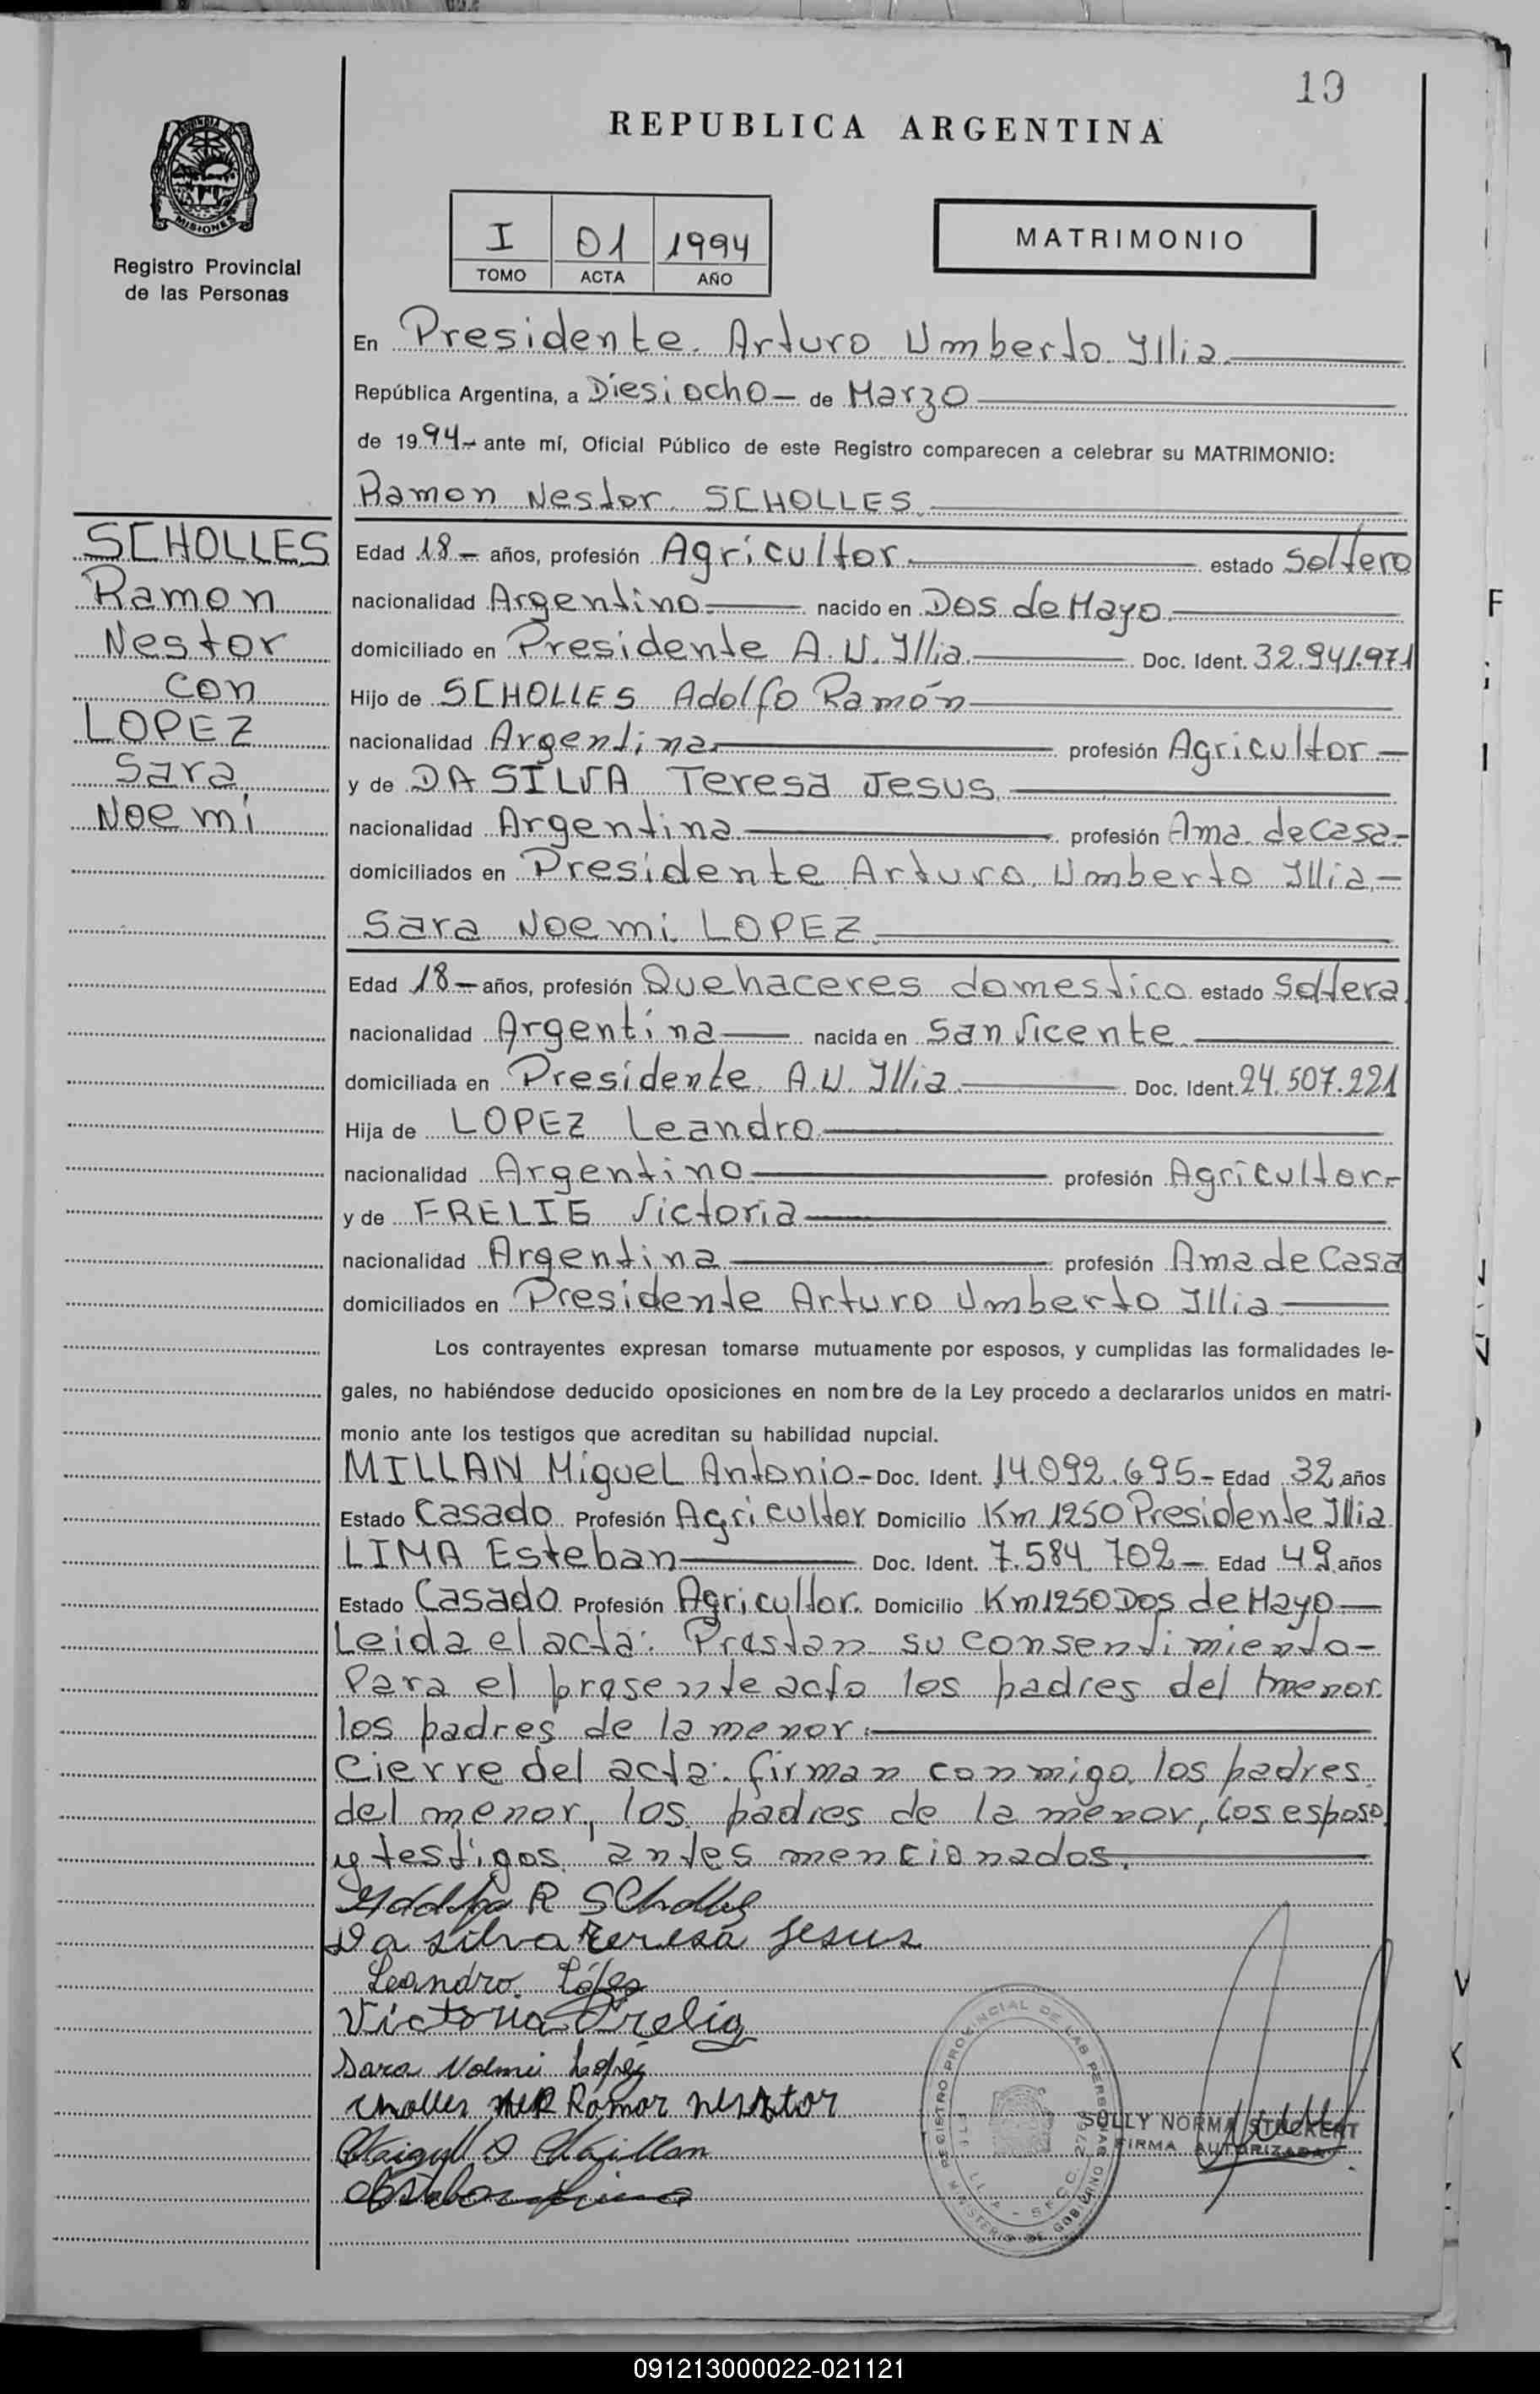 10
REPUBLICA ARGENTINA
MISIONES
Registro Provincial
de las Personas
I 01 1994
TOMO ACTA AÑO
MATRIMONIO
En Presidente Arturo Umberto Yllia
República Argentina, a Diesi ocho - de Marzo
de 1994- ante mí, Oficial Público de este Registro comparecen a celebrar su MATRIMONIO:
Ramon Nestor SCHOLLES
SCHOLLES
Ramon
Nestor
con
LOPEZ
Sara
Noemi
Edad 18- años, profesión Agricultor estado Soltero
nacionalidad Argentino nacido en Dos de Mayo
domiciliado en Presidente A.U. Yllia Doc. Ident. 32.941.971
Hijo de SCHOLLES Adolfo Ramón
nacionalidad Argentina profesión Agricultor-
y de DA SILVA Teresa Jesus
nacionalidad Argentina profesión Ama de Casa-
domiciliados en Presidente Arturo Umberto Yllia-
Sara Noemi LOPEZ
Edad 18- años, profesión Quehaceres domestico estado Soltera
nacionalidad Argentina nacida en San Vicente
domiciliada en Presidente A.U. Yllia Doc. Ident. 24.507.221
Hija de LOPEZ Leandro
nacionalidad Argentino profesión Agricultor-
y de FRELIG Victoria
nacionalidad Argentina profesión Ama de Casa
domiciliados en Presidente Arturo Umberto Yllia
Los contrayentes expresan tomarse mutuamente por esposos, y cumplidas las formalidades le-
gales, no habiéndose deducido oposiciones en nombre de la Ley procedo a declararlos unidos en matri-
monio ante los testigos que acreditan su habilidad nupcial.
MILLAN Miguel Antonio- Doc. Ident. 14.092.695- Edad 32 años
Estado Casado Profesión Agricultor Domicilio Km 1250 Presidente Yllia
LIMA Esteban Doc. Ident. 7.584.702- Edad 49 años
Estado Casado Profesión Agricultor. Domicilio Km 1250 Dos de Mayo
Leida el acta: Prestan su consentimiento-
Para el presente acto los padres del menor
los padres de la menor:
Cierre del acta: firman conmigo, los padres
del menor, los padres de la menor, los esposo
y testigos antes mencionados.
Adolfo R Scholles
Da silva teresa Jesus
Leandro López
Victoria Frelig
Sara Noemi Lopez
Ramon
Esteban Lima
REGISTRO PROVINCIAL DE LAS PERSONAS
MINISTERIO DE GOBIERNO
SULLY NORMA STUCKERT
FIRMA AUTORIZADA
091213000022-021121